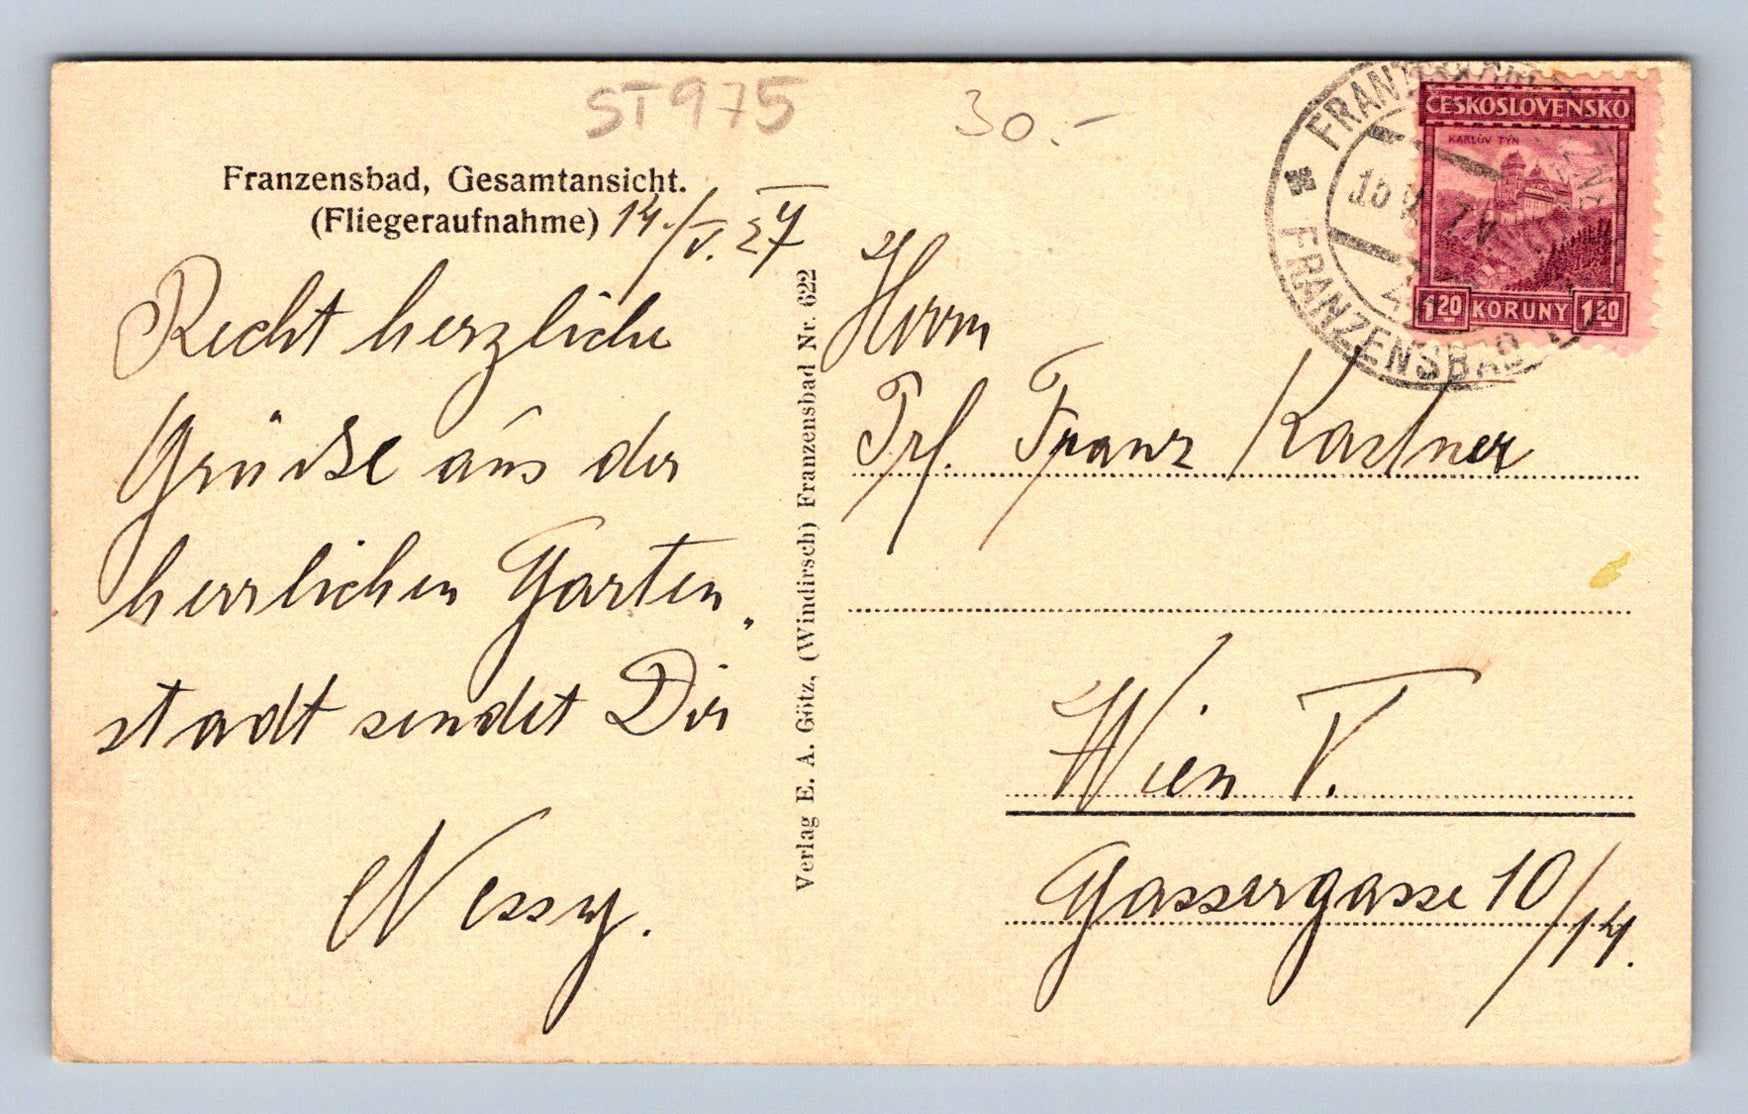 ST975
30.-
Franzensbad, Gesamtansicht.
(Fliegeraufnahme)
14./V. 27
Recht herzliche
Grüße aus der
herrlichen Garten„
stadt sendet Dir
Nessy.
Verlag E. A. Götz, (Windirsch) Franzensbad Nr. 622
Herrn
Franz Kastner
Wien V.
Gassergasse 10/14.
ČESKOSLOVENSKO
KARLŮV TÝN
1.20 KORUNY 1.20
FRANZENSBAD